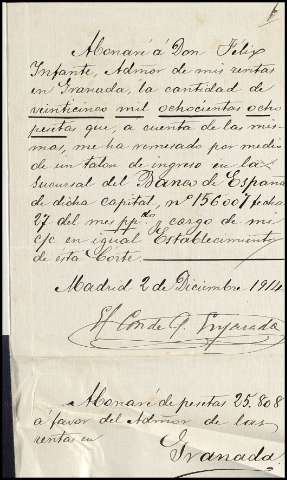 Abonaré á Don Félix
Infante, Admor de mis rentas
en Granada, la cantidad de
veinticinco mil ochocientas ocho
pesetas que, a cuenta de las mis-
mas, me ha remesado por medio
de un talon de ingreso en la
Sucursal del Banco de España
de dicha capital, nº 156007 fecha
27 del mes ppdo y cargo de mi
c/c en igual Establecimiento
de esta Corte.
Madrid 2 de Diciembre 1914
El Conde de
Abonaré de pesetas 25.808
á favor del Admor de las
rentas en
Granada